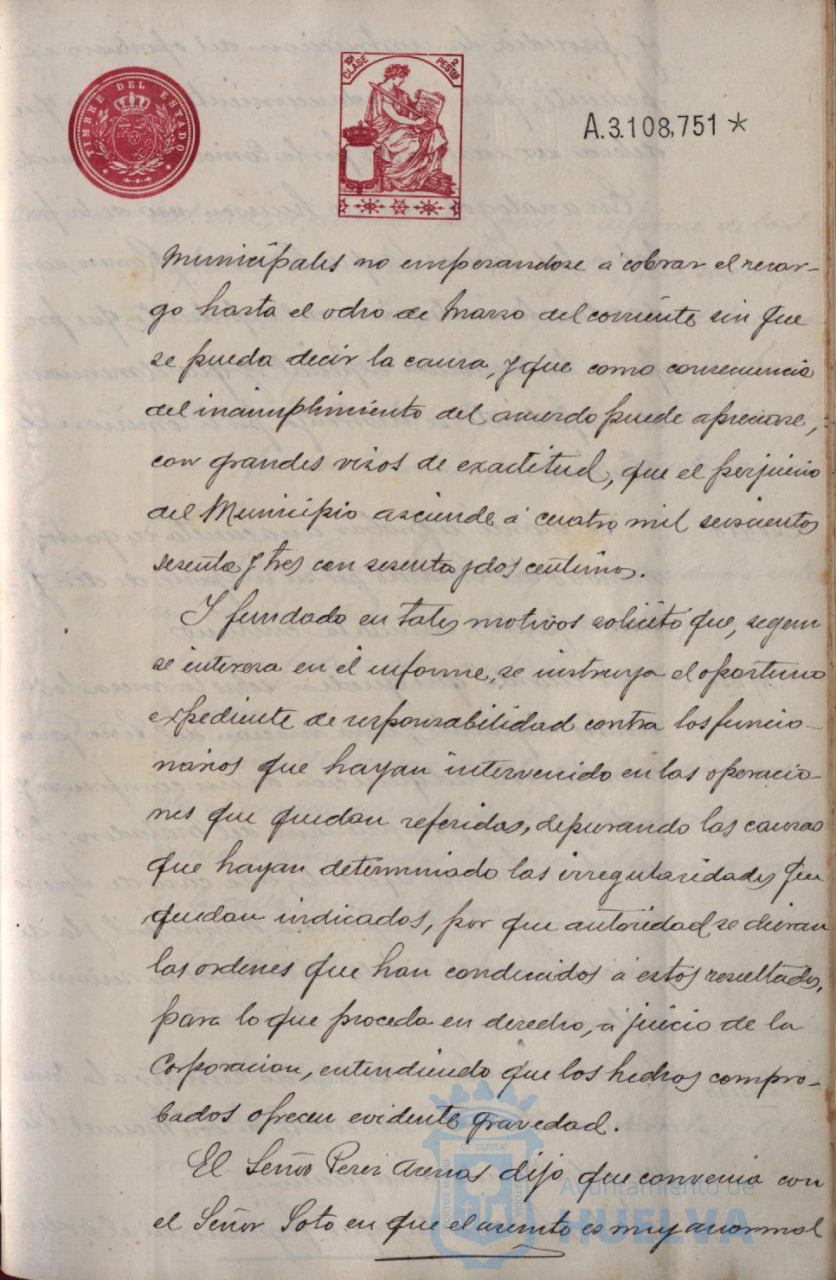 TIMBRE DEL ESTADO
10ª CLASE
2 PESETAS
A.3.108,751 *
Municipales no emperandose á cobrar el recar-
go hasta el ocho de Marzo del corriente sin que
se pueda decir la causa, y que como consecuencia
del incumplimiento del acuerdo puede apreciarse,
con grandes visos de exactitud, que el perjuicio
del Municipio asciende á cuatro mil seiscientos
sesenta y tres con sesenta y dos centimos.
Y fundado en tales motivos solicitó que, segun
se interesa en el informe, se instruya el oportuno
expediente de responsabilidad contra los funcio-
narios que hayan intervenido en las operacio-
nes que quedan referidas, depurando las causas
que hayan determinado las irregularidades que
quedan indicados, por que autoridad se dieran
las ordenes que han conducidos á estos resultados,
para lo que proceda en derecho, á juicio de la
Corporacion, entendiendo que los hechos compro-
bados ofrecen evidente gravedad.
El Señor Perez Arenas dijo que convenia con
el Señor Soto en que el asunto es muy anormal
Ayuntamiento de
HUELVA